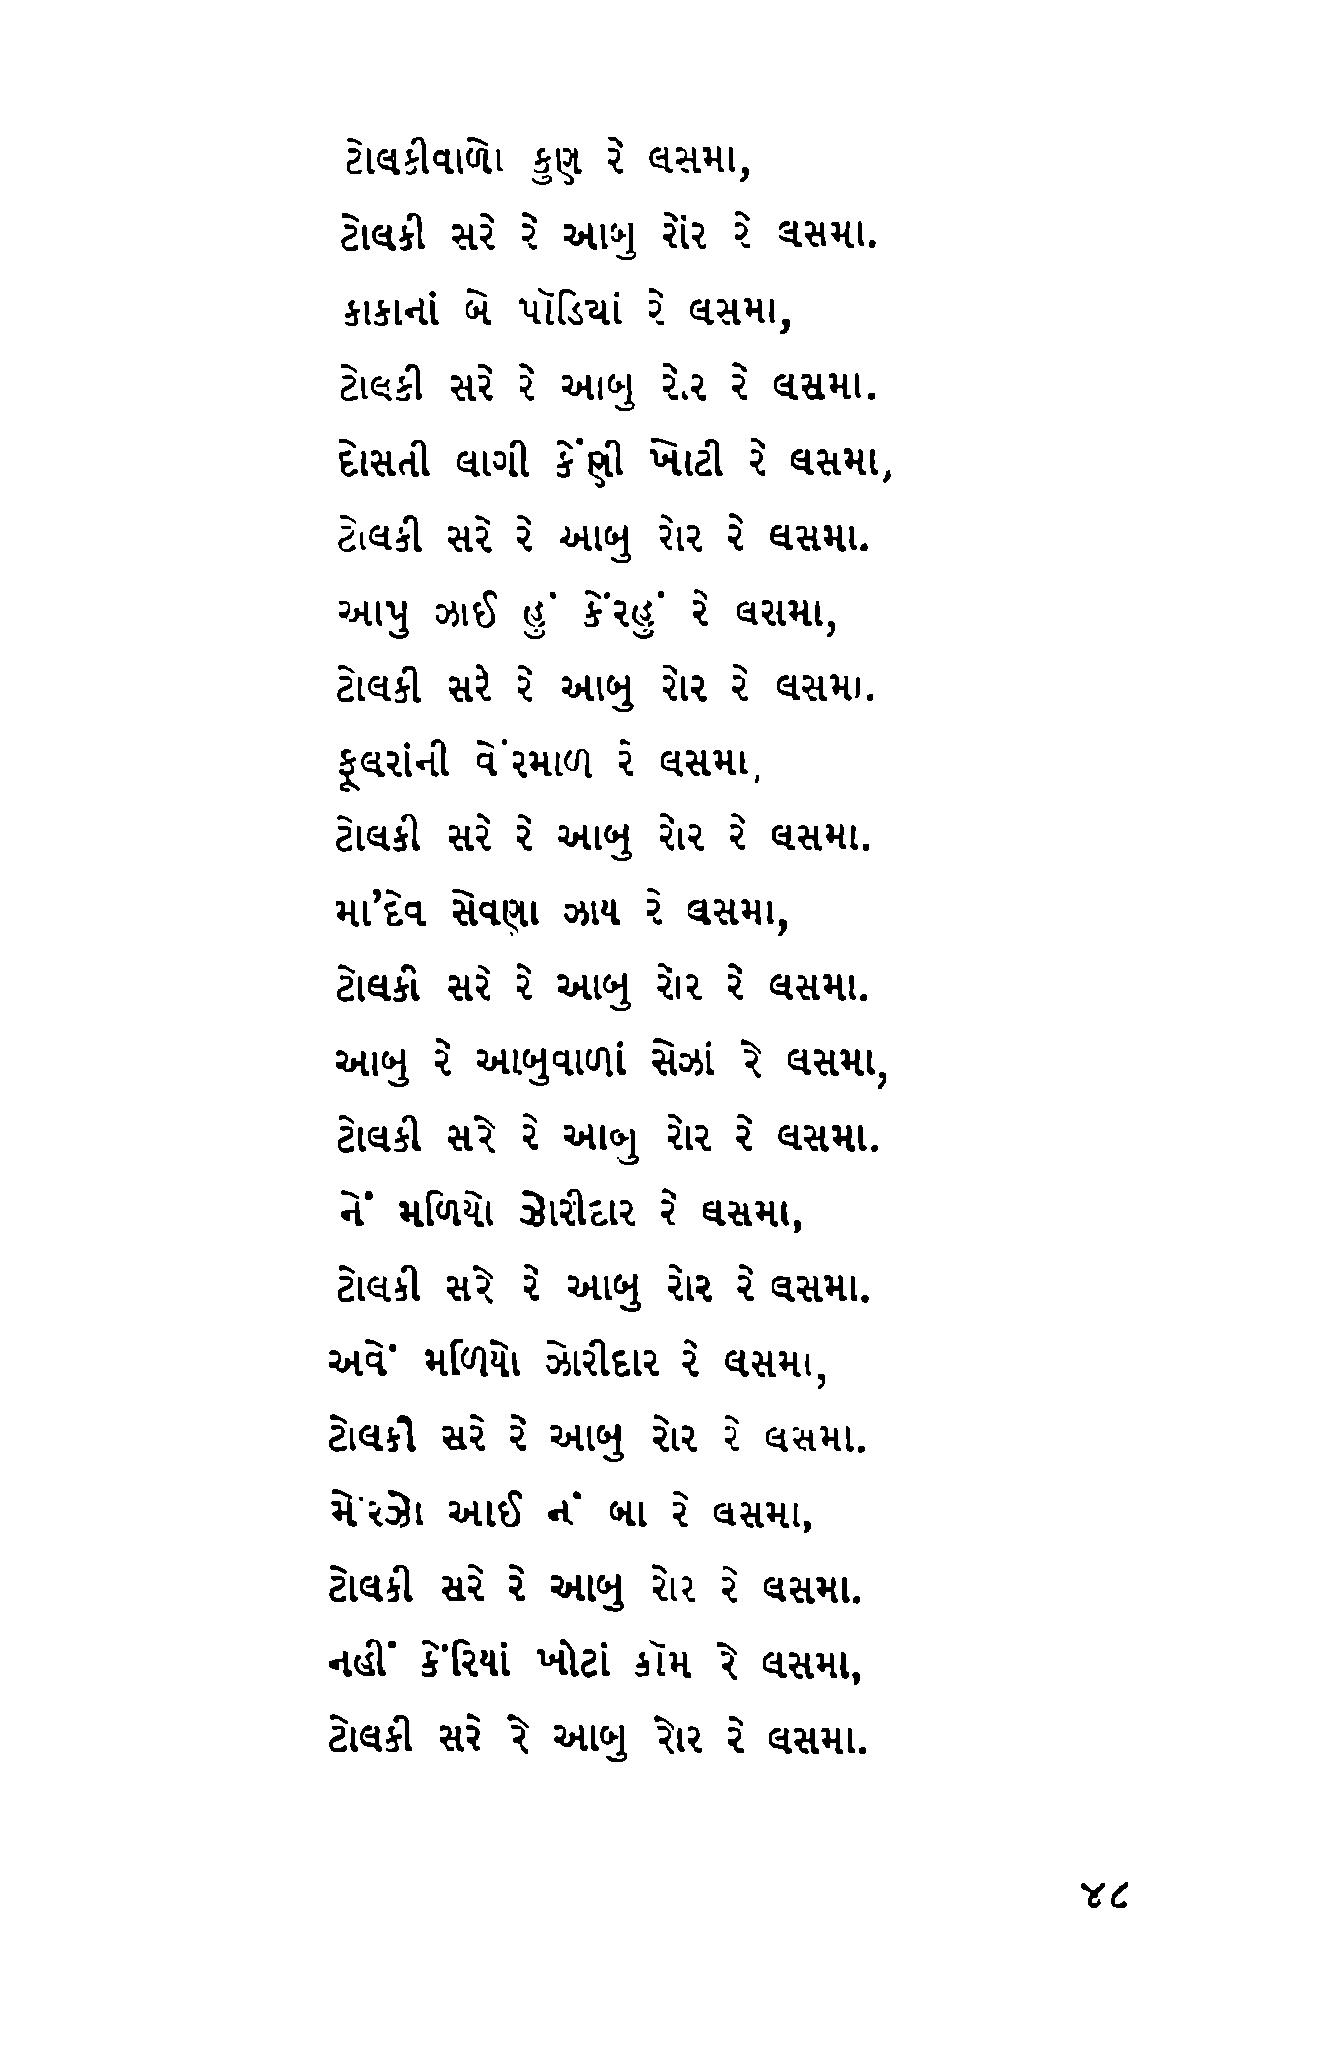 ટોલકીવાળો કુણ રે લસમા,
ટોલકી સરે રે આબુ રોંર રે લસમા.
કાકાનાં બે પૉડિયાં રે લસમા,
ટોલકી સરે રે આબુ રોર રે લસમા.
દોસતી લાગી કેંણી ખોટી રે લસમા,
ટોલકી સરે રે આબુ રોર રે લસમા.
આપુ ઝાઈ હું કેંરહું રે લસમા,
ટોલકી સરે રે આબુ રોર રે લસમા.
ફૂલરાંની વેંરમાળ રે લસમા,
ટોલકી સરે રે આબુ રોર રે લસમા.
મા'દેવ સેવણા ઝાય રે લસમા,
ટોલકી સરે રે આબુ રોર રે લસમા.
આબુ રે આબુવાળાં સેઝાં રે લસમા,
ટોલકી સરે રે આબુ રોર રે લસમા.
નેં મળિયો ઝોરીદાર રે લસમા,
ટોલકી સરે રે આબુ રોર રે લસમા.
અવેં મળિયો ઝોરીદાર રે લસમા,
ટોલકી સરે રે આબુ રોર રે લસમા.
મેંરઝો આઈ નં બા રે લસમા,
ટોલકી સરે રે આબુ રોર રે લસમા.
નહીં કેંરિયાં ખોટાં કૉમ રે લસમા,
ટોલકી સરે રે આબુ રોર રે લસમા.
૪૮